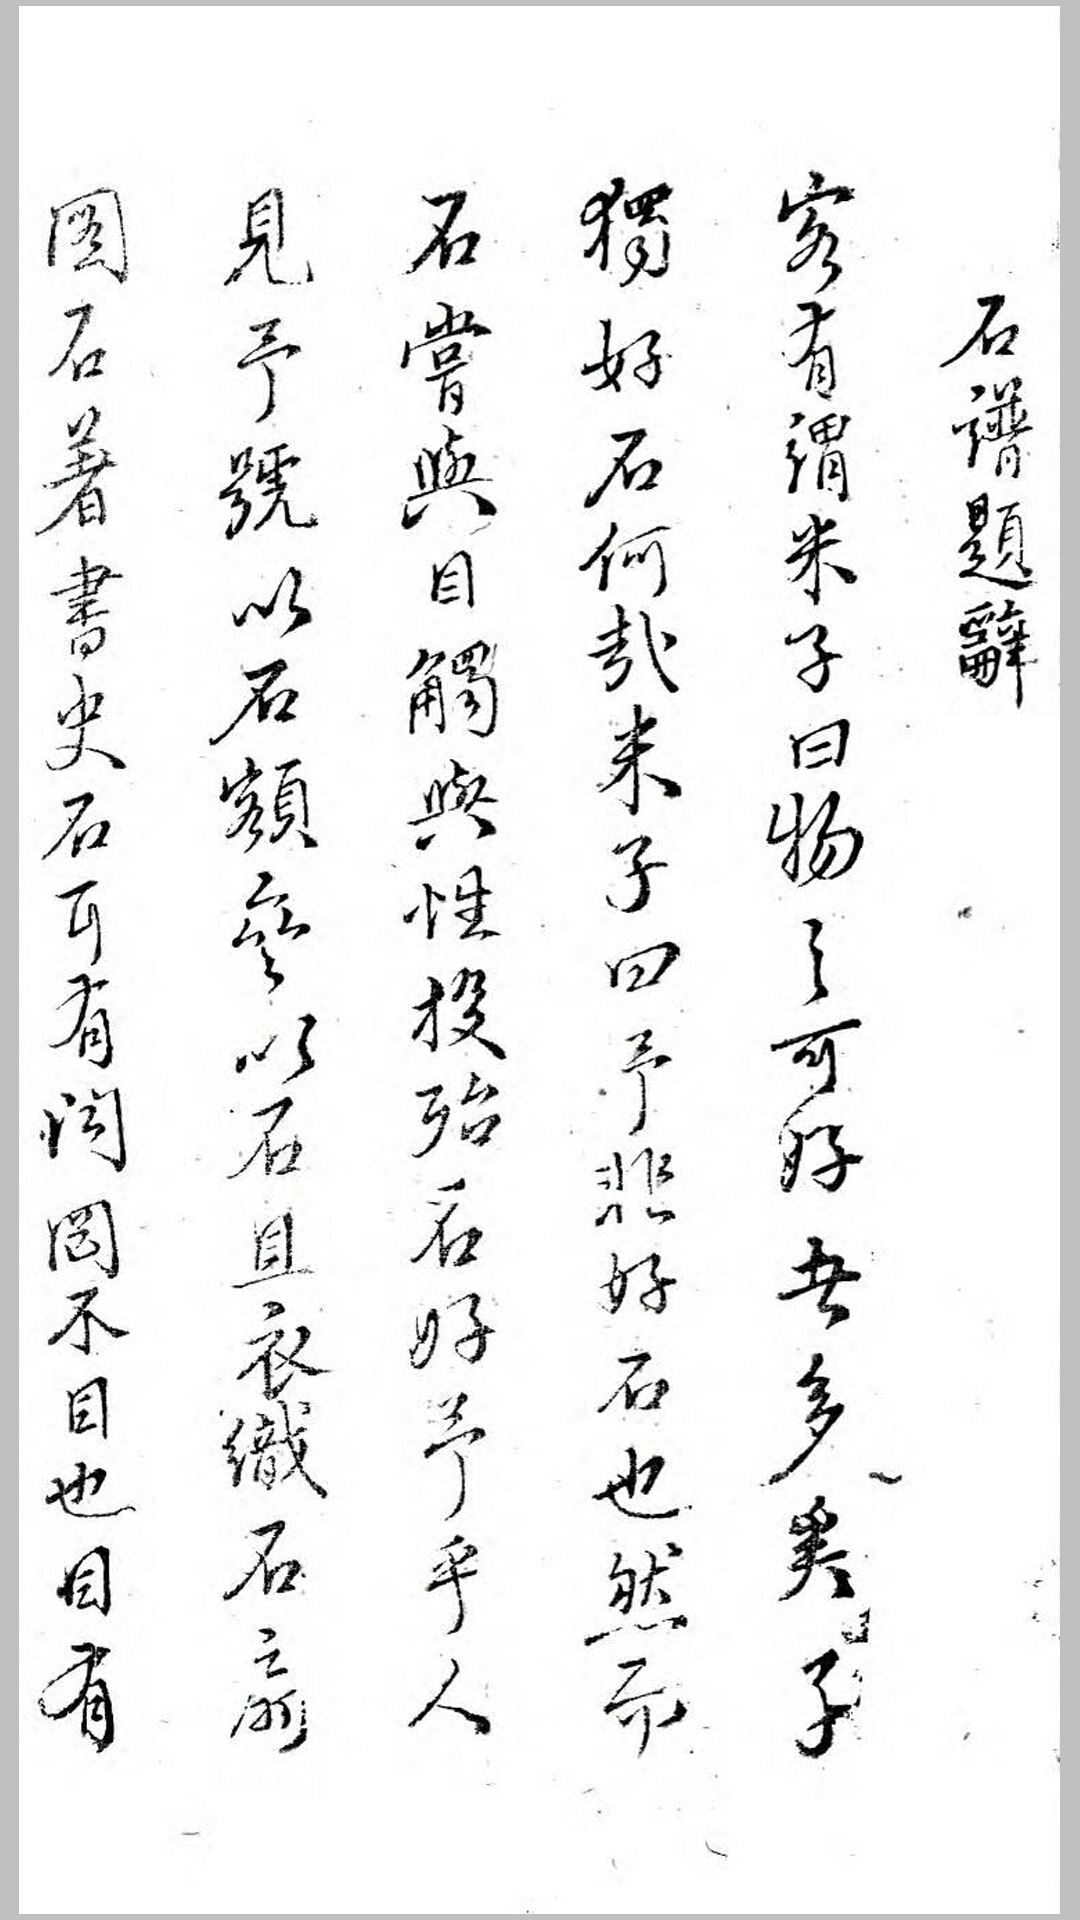 石譜題辭
客有謂米子曰物之可好者多矣子
獨好石何哉米子曰予非好石也然而
石嘗與目觸與性投殆石好予乎人
見予號以石額齋以石且衣織石斋
圖石著書史石耳有聞罔不目也目有